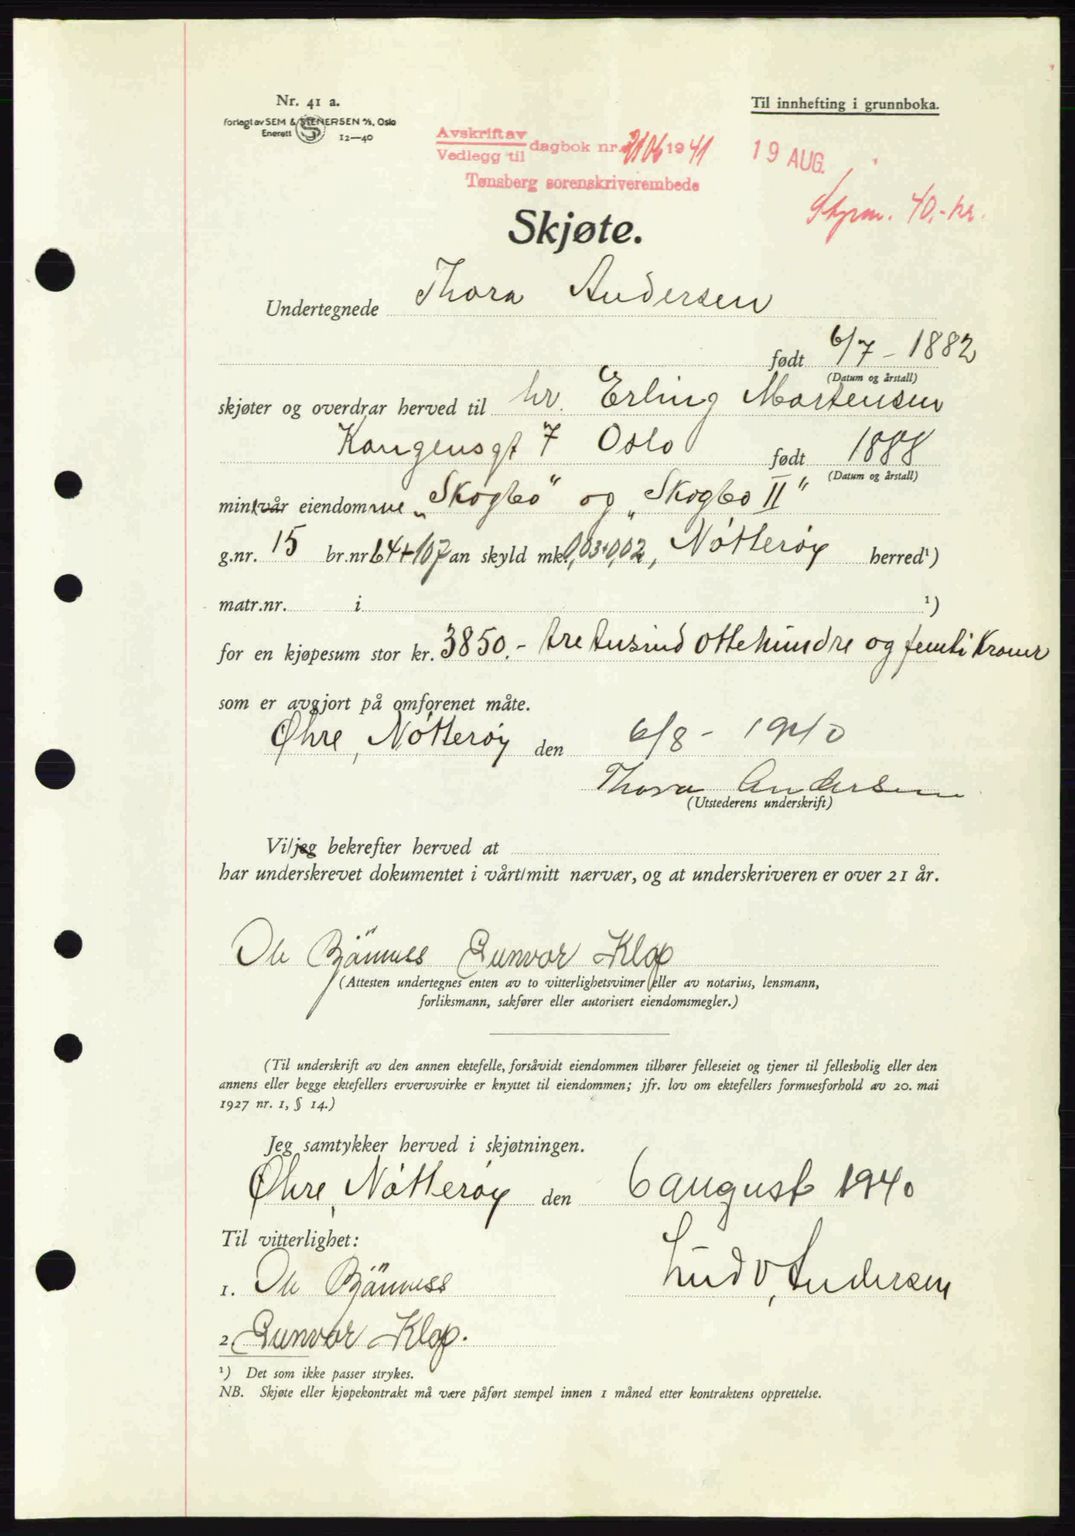 Nr. 41 a.
Til innhefting i grunnboka.
Forlagt av SEM & STENERSEN A/S, Oslo
Enerett 12—40
Avskrift av
Vedlegg til dagbok nr. 2106 1941
19 AUG.
Tønsberg sorenskriverembede
Stpm. 40,- kr.
Skjøte.
Undertegnede Thora Andersen
født 6/7 - 1882
(Datum og årstall)
skjøter og overdrar herved til hr. Erling Mortensen
Kongensgt 7 Oslo født 1888
(Datum og årstall)
min/vår eiendommene „Skogbo" og „Skogbo II"
g.nr. 15 br.nr 64+107 an skyld mk. 0,03+0,02, Nøtterøy herred¹)
matr.nr. i ¹)
for en kjøpesum stor kr. 3850.- tre tusind ottehundre og femti Kroner
som er avgjort på omforenet måte.
Øhre, Nøtterøy den 6/8 - 1940
Thora Andersen
(Utstederens underskrift)
Vi/jeg bekrefter herved at
har underskrevet dokumentet i vårt/mitt nærvær, og at underskriveren er over 21 år.
Ole Bjänness Gunvor Klop
(Attesten undertegnes enten av to vitterlighetsvitner eller av notarius, lensmann,
forliksmann, sakfører eller autorisert eiendomsmegler.)
(Til underskrift av den annen ektefelle, forsåvidt eiendommen tilhører felleseiet og tjener til fellesbolig eller den
annens eller begge ektefellers ervervsvirke er knyttet til eiendommen; jfr. lov om ektefellers formuesforhold av 20. mai
1927 nr. 1, § 14.)
Jeg samtykker herved i skjøtningen.
Øhre, Nøtterøy den 6 august 1940
Til vitterlighet:
Ludv. Andersen
1. Ole Bjänness
2. Gunvor Klop.
¹) Det som ikke passer strykes.
NB. Skjøte eller kjøpekontrakt må være påført stempel innen 1 måned etter kontraktens opprettelse.